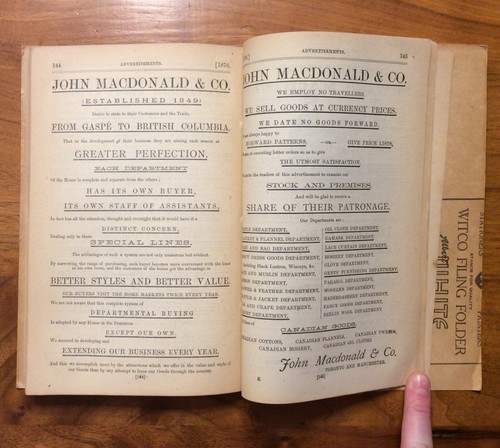 144 ADVERTISEMENTS. [1876.
JOHN MACDONALD & CO.
(ESTABLISHED 1849)
Desire to state to their Customers and the Trade,
FROM GASPÉ TO BRITISH COLUMBIA,
That in the development of their business they are aiming each season at
GREATER PERFECTION.
EACH DEPARTMENT
Of the House is complete and separate from the others;
HAS ITS OWN BUYER,
ITS OWN STAFF OF ASSISTANTS,
In fact has all the attention, thought and oversight that it would have if a
DISTINCT CONCERN,
Dealing only in these
SPECIAL LINES.
The advantages of such a system are not only numerous but evident.
By narrowing the range of purchasing, each buyer becomes more conversant with the lines
in his own house, and the customers of the house get the advantage in
BETTER STYLES AND BETTER VALUE.
OUR BUYERS VISIT THE HOME MARKETS TWICE EVERY YEAR.
We are not aware that this complete system of
DEPARTMENTAL BUYING
Is adopted by any House in the Dominion
EXCEPT OUR OWN.
We succeed in developing and
EXTENDING OUR BUSINESS EVERY YEAR.
And this we accomplish more by the attractions which we offer in the value and style of
our Goods than by any attempt to force our Goods through the country.
[144]
ADVERTISEMENTS. 145
JOHN MACDONALD & CO.
WE EMPLOY NO TRAVELLERS
WE SELL GOODS AT CURRENCY PRICES.
WE DATE NO GOODS FORWARD.
always happy to
FORWARD PATTERNS, —OR— GIVE PRICE LISTS,
executing letter orders so as to give
THE UTMOST SATISFACTION
the readers of this advertisement to examine our
STOCK AND PREMISES
And will be glad to receive a
SHARE OF THEIR PATRONAGE.
Our Departments are:
DEPARTMENT, OIL CLOTH DEPARTMENT,
& FLANNEL DEPARTMENT, DAMASK DEPARTMENT,
AND BAG DEPARTMENT, LACE CURTAIN DEPARTMENT,
DRESS GOODS DEPARTMENT, HOSIERY DEPARTMENT,
Black Lustres, Winceys, &c. GLOVE DEPARTMENT,
AND MUSLIN DEPARTMENT, GENTS' FURNISHING DEPARTMENT,
DEPARTMENT, PARASOL DEPARTMENT,
& FEATHER DEPARTMENT, DEPARTMENT,
& JACKET DEPARTMENT, HABERDASHERY DEPARTMENT,
AND CRAPE DEPARTMENT, FANCY GOODS DEPARTMENT,
DEPARTMENT, BERLIN WOOL DEPARTMENT
CANADIAN GOODS.
CANADIAN COTTONS, CANADIAN FLANNELS, CANADIAN TWEEDS,
CANADIAN HOSIERY, CANADIAN OIL CLOTHS
John Macdonald & Co.
TORONTO AND MANCHESTER.
K [145]
WITCO FILING FOLDER
WHITE